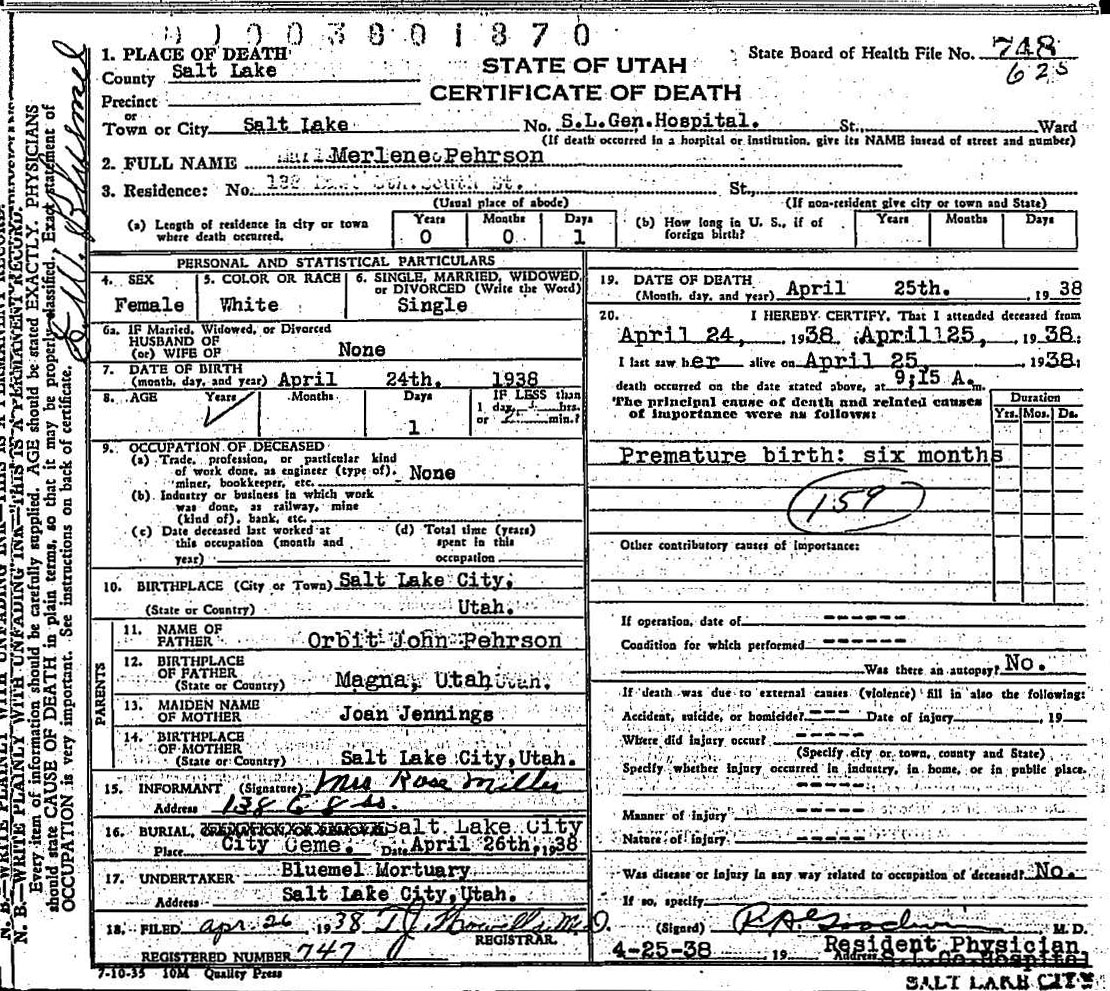 01003801870
1. PLACE OF DEATH
County Salt Lake
Precinct
or
Town or City Salt Lake No. S.L.Gen.Hospital. St., Ward
(If death occurred in a hospital or institution, give its NAME instead of street and number)
STATE OF UTAH
CERTIFICATE OF DEATH
State Board of Health File No. 748
625
2. FULL NAME Merlene Pehrson
3. Residence: No. St.,
(Usual place of abode) (If non-resident give city or town and State)
(a) Length of residence in city or town where death occurred. Years 0 Months 0 Days 1
(b) How long in U. S., if of foreign birth? Years Months Days
PERSONAL AND STATISTICAL PARTICULARS
4. SEX Female
5. COLOR OR RACE White
6. SINGLE, MARRIED, WIDOWED, or DIVORCED (Write the Word) Single
6a. IF Married, Widowed, or Divorced
HUSBAND OF
(or) WIFE OF None
7. DATE OF BIRTH
(month, day, and year) April 24th. 1938
8. AGE Years Months Days 1
IF LESS than
1 day, hrs.
or min.?
9. OCCUPATION OF DECEASED
(a) Trade, profession, or particular kind
of work done, as engineer (type of).
miner, bookkeeper, etc. None
(b) Industry or business in which work
was done, as railway, mine
(kind of), bank, etc.
(c) Date deceased last worked at
this occupation (month and
year)
(d) Total time (years)
spent in this
occupation
10. BIRTHPLACE (City or Town) Salt Lake City,
(State or Country) Utah.
PARENTS
11. NAME OF
FATHER Orbit John Pehrson
12. BIRTHPLACE
OF FATHER
(State or Country) Magna, Utah
13. MAIDEN NAME
OF MOTHER Joan Jennings
14. BIRTHPLACE
OF MOTHER
(State or Country) Salt Lake City, Utah.
15. INFORMANT (Signature) Mrs Rose Miller
Address 138 E 8 So.
16. BURIAL, CREMATION OR REMOVAL Salt Lake City
Place City Ceme. Date April 26th, 1938
17. UNDERTAKER Bluemel Mortuary
Address Salt Lake City, Utah.
18. FILED Apr. 26 1938 T J Howells M.D.
REGISTRAR.
REGISTERED NUMBER 747
7-10-35 10M Quality Press
19. DATE OF DEATH
(Month, day, and year) April 25th. , 1938
20. I HEREBY CERTIFY, That I attended deceased from
April 24, 1938 : April 25, 1938:
I last saw her alive on April 25, 1938:
death occurred on the date stated above, at 9;15 A.m.
The principal cause of death and related causes
of importance were as follows:
Duration
Yrs. Mos. Ds.
Premature birth: six months
159
Other contributory causes of importance:
If operation, date of -----
Condition for which performed -----
Was there an autopsy? No.
If death was due to external causes (violence) fill in also the following:
Accident, suicide, or homicide? --- Date of injury , 19
Where did injury occur? -----
(Specify city or town, county and State)
Specify whether injury occurred in industry, in home, or in public place.
-----
Manner of injury ----
Nature of injury ----
Was disease or injury in any way related to occupation of deceased? No.
If so, specify
(Signed) M. D.
4-25-38 19 Address Resident Physician
S.L.Ge.Hospital
SALT LAKE CITY
N. B.—WRITE PLAINLY WITH UNFADING INK—THIS IS A PERMANENT RECORD.
N. B.—WRITE PLAINLY WITH UNFADING INK—THIS IS A PERMANENT RECORD.
Every item of information should be carefully supplied. AGE should be stated EXACTLY. PHYSICIANS
should state CAUSE OF DEATH in plain terms, so that it may be properly classified. Exact statement of
OCCUPATION is very important. See instructions on back of certificate.